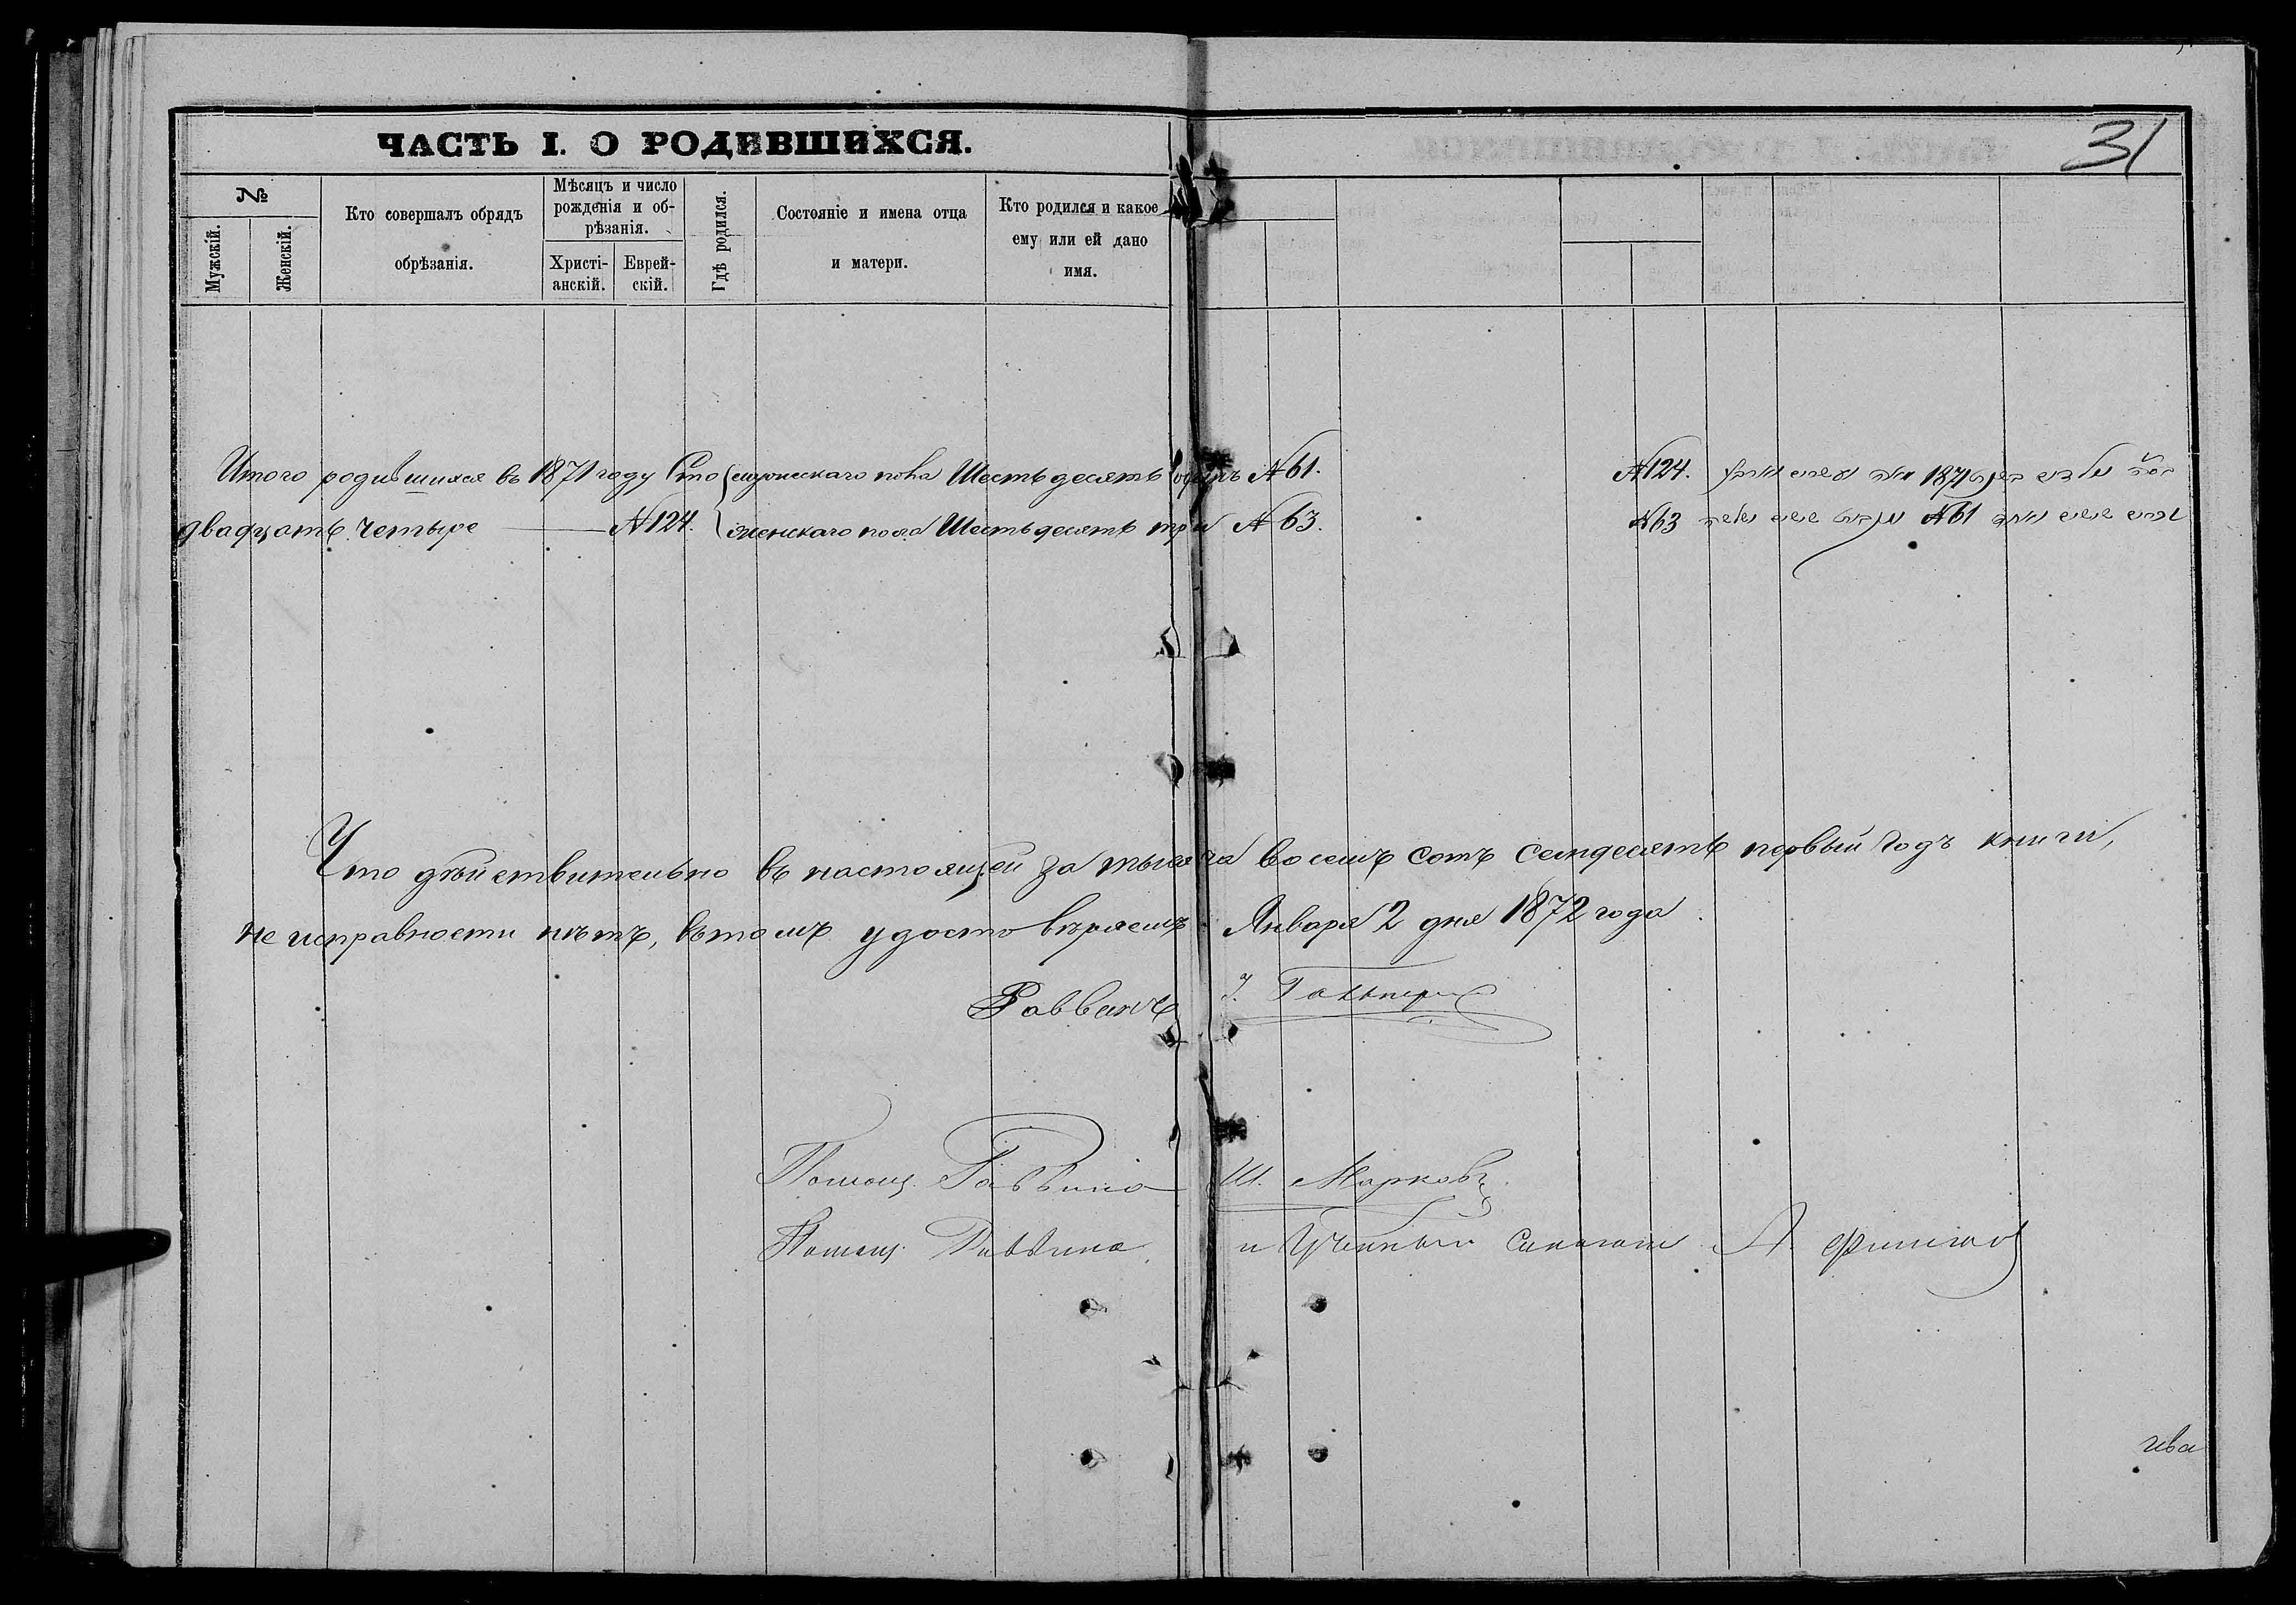 31
ЧАСТЬ I. О РОДИВШИХСЯ.
№
Мужскій.
Женскій.
Кто совершалъ обрядъ
обрѣзанія.
Мѣсяцъ и число
рожденія и об-
рѣзанія.
Христі-
анскій.
Еврей-
скій.
Гдѣ родился.
Состояніе и имена отца
и матери.
Кто родился и какое
ему или ей дано
имя.
Итого родившихся въ 1871 году Сто {мужескаго пола Шестьдесятъ одинъ №61.
двадцать четыре — №124. {женскаго пола Шестьдесятъ три №63.
1871 №124.
№61 №63
Что дѣйствительно въ настоящей за тысяча восемь сотъ семдесятъ первый годъ книги,
не исправности нѣтъ, въ томъ удостовѣряемъ. Января 2 дня 1872 года.
Раввинъ
Помощ. Раввина Ш. Марковъ
Помощ. Раввина и